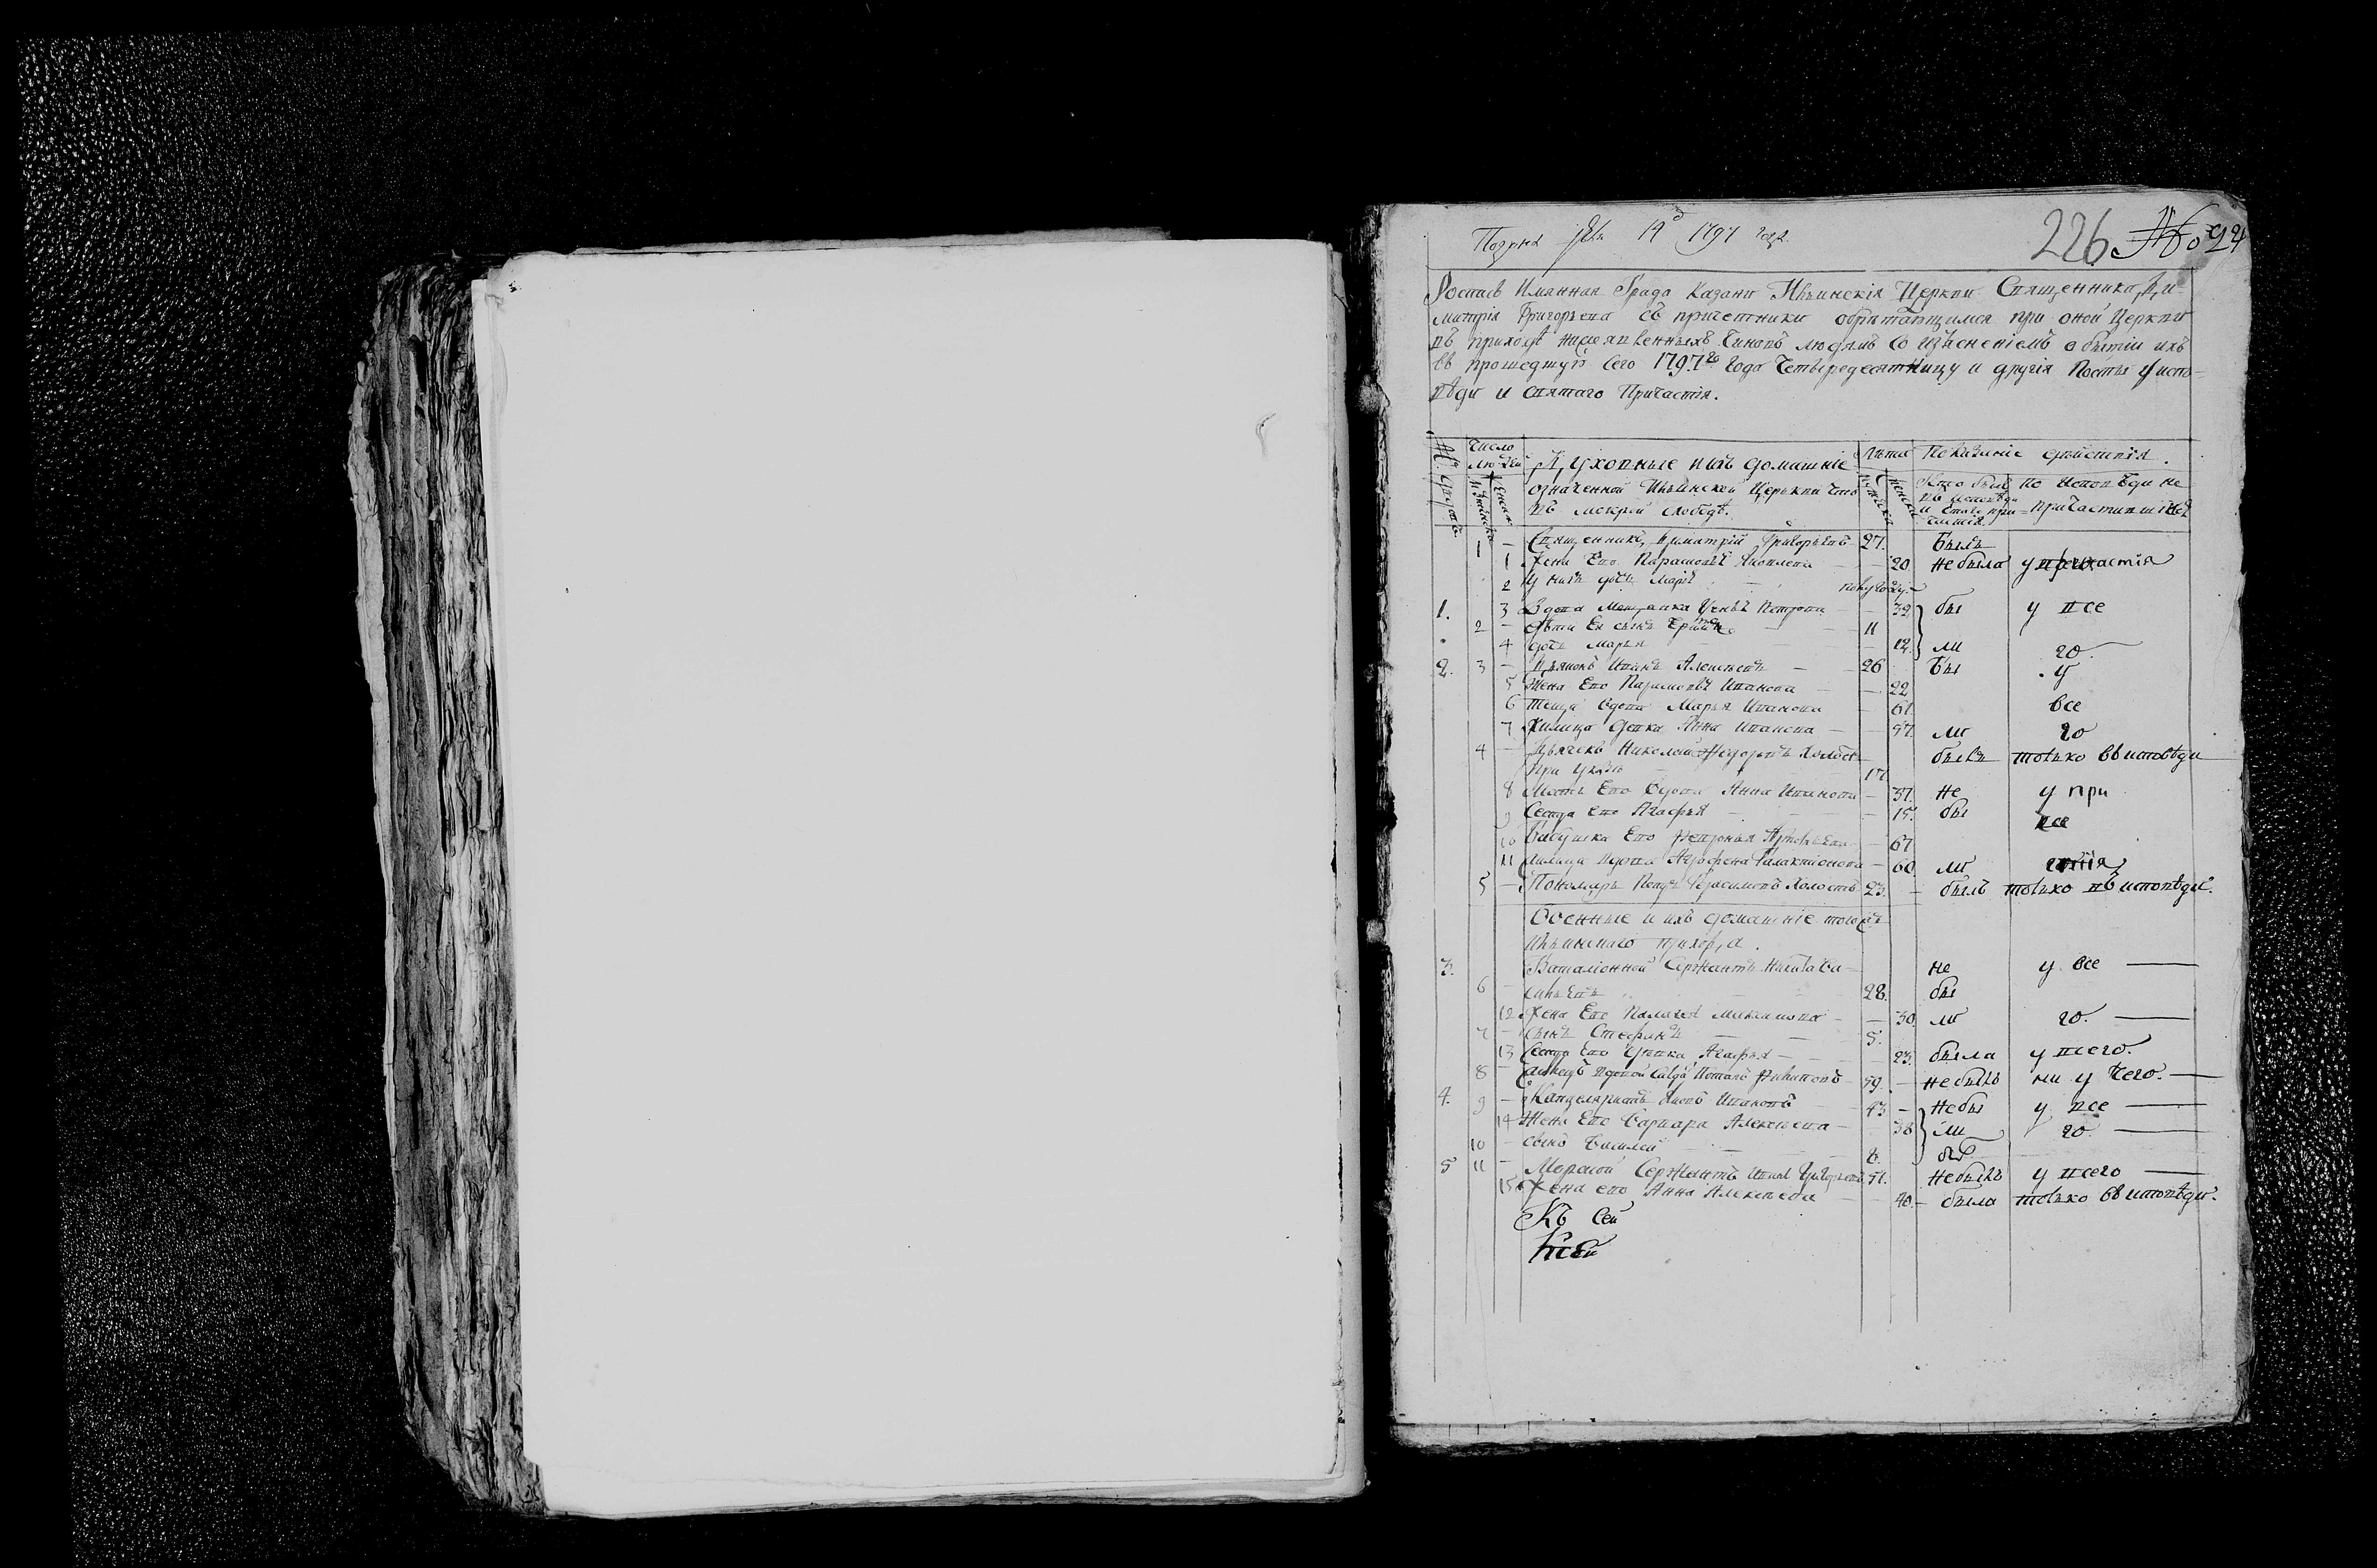 1797 226
Роспись Имянная Града Казани Ильинскія Церкви Священника Ди-
митрія Григорьева съ причетники обрѣтающимся при оной Церкви
въ приходѣ нижеявленныхъ чиновъ людямъ со изъясненіемъ о бытіи ихъ
въ прошедшую сего 1797го Года Четыредесятницу и другія Посты у испо-
вѣди и святаго Причастія.
Число людей Духовные ихъ домашніе Лѣта Показаніе дѣйствія.
означенной Ильинской Церкви что Кто былъ по исповѣди не
въ мокрой слободѣ. въ исповѣди и причастия причастившійся
1 – Священникъ Димитрій Григорьевъ 27. Былъ
1 Жена Его Парасковья Яковлева – 20 Не была у причастія
2 У нихъ дочь Марья полугоду
1. 3 Вдова Мещанка Петрова – 32 бы у все
2 – Дѣти Ея сынъ 11
4 дочь Марья – 12. ли го
2. 3 – Дьяконъ Иванъ Алексѣевъ – 26 Бы у
5 Жена Его Парасковья Иванова – 22
6 теща вдова Марья Иванова – 61 все
7 Жилица девка Анна Иванова – 57 ли го
4 – Дьячекъ Николай Ѳедоровъ Холостъ былъ только въ исповѣди
при указѣ 17.
8 Мать Его Вдова Анна Иванова – 37. Не у при
9 Сестра его Агафья – 15. бы все
10 Бабушка Его – 67
11 Жилица вдова Агрофена Галактионова – 60 ли
5 – Пономарь Петръ Герасимовъ Холостъ 23. – былъ только въ исповѣди.
Военные и ихъ домашніе тогожъ
Ильинскаго прихода.
3. Баталіонной Сержантъ Никита Ва- не у все
6 – сильевъ 28. бы
12 Жена Его Пелагея Максимова – 30. ли го.
7 – сынъ Стефанъ 5.
13 Сестра Его Девка Агафья – 23. была у всего.
8 – 59. – Не былъ ни у чего.
4. 9 – Канцеляристъ Яковъ Ивановъ – 43 – Не бы у все
14 Жена Его Варвара Алексѣева – 38 ли го
10 – сынъ Василей 8.
5 11 – Морской Сержантъ Иванъ Григорьевъ 51. Не былъ у всего
15 Жена его Анна Алексѣева – 40 – была только въ исповѣди.
Къ сей